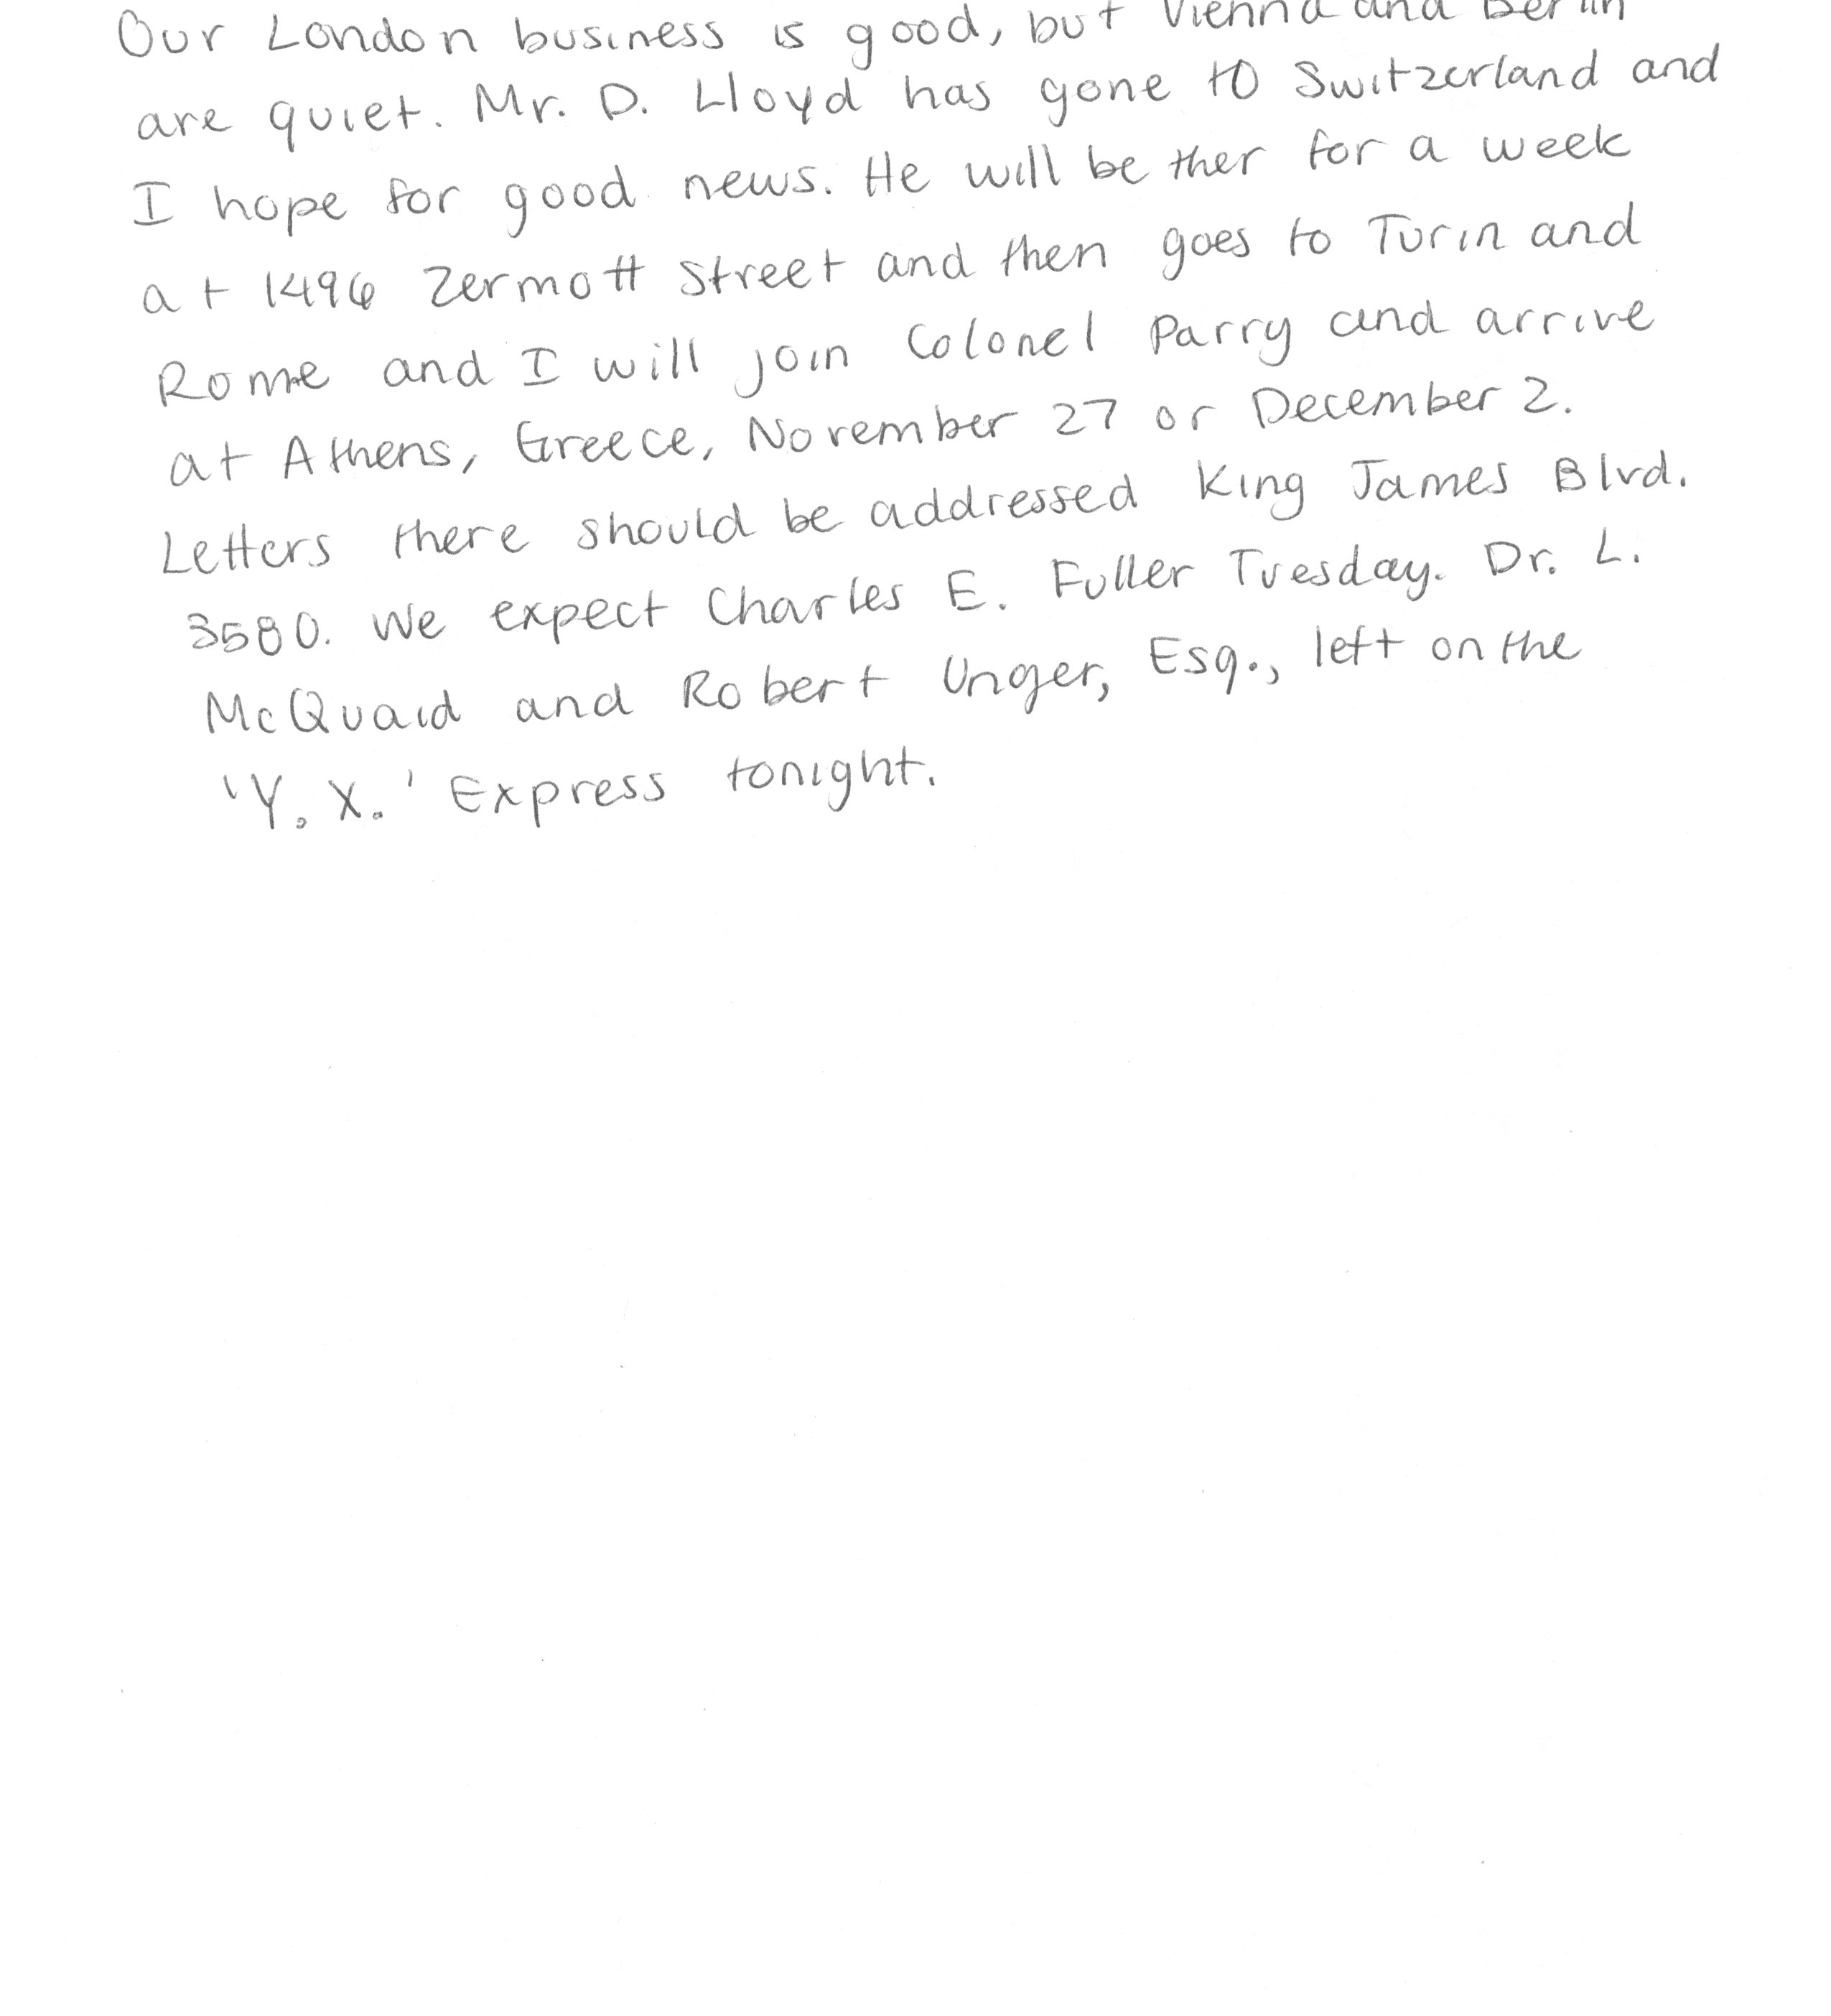 Our London business is good, but Vienna and Berlin
are quiet. Mr. D. Lloyd has gone to Switzerland and
I hope for good news. He will be ther for a week
at 1496 Zermott Street and then goes to Turin and
Rome and I will join Colonel Parry and arrive
at Athens, Greece, November 27 or December 2.
Letters there should be addressed King James Blvd.
3580. We expect Charles E. Fuller Tuesday. Dr. L.
McQuaid and Robert Unger, Esq., left on the
'Y. X.' Express tonight.